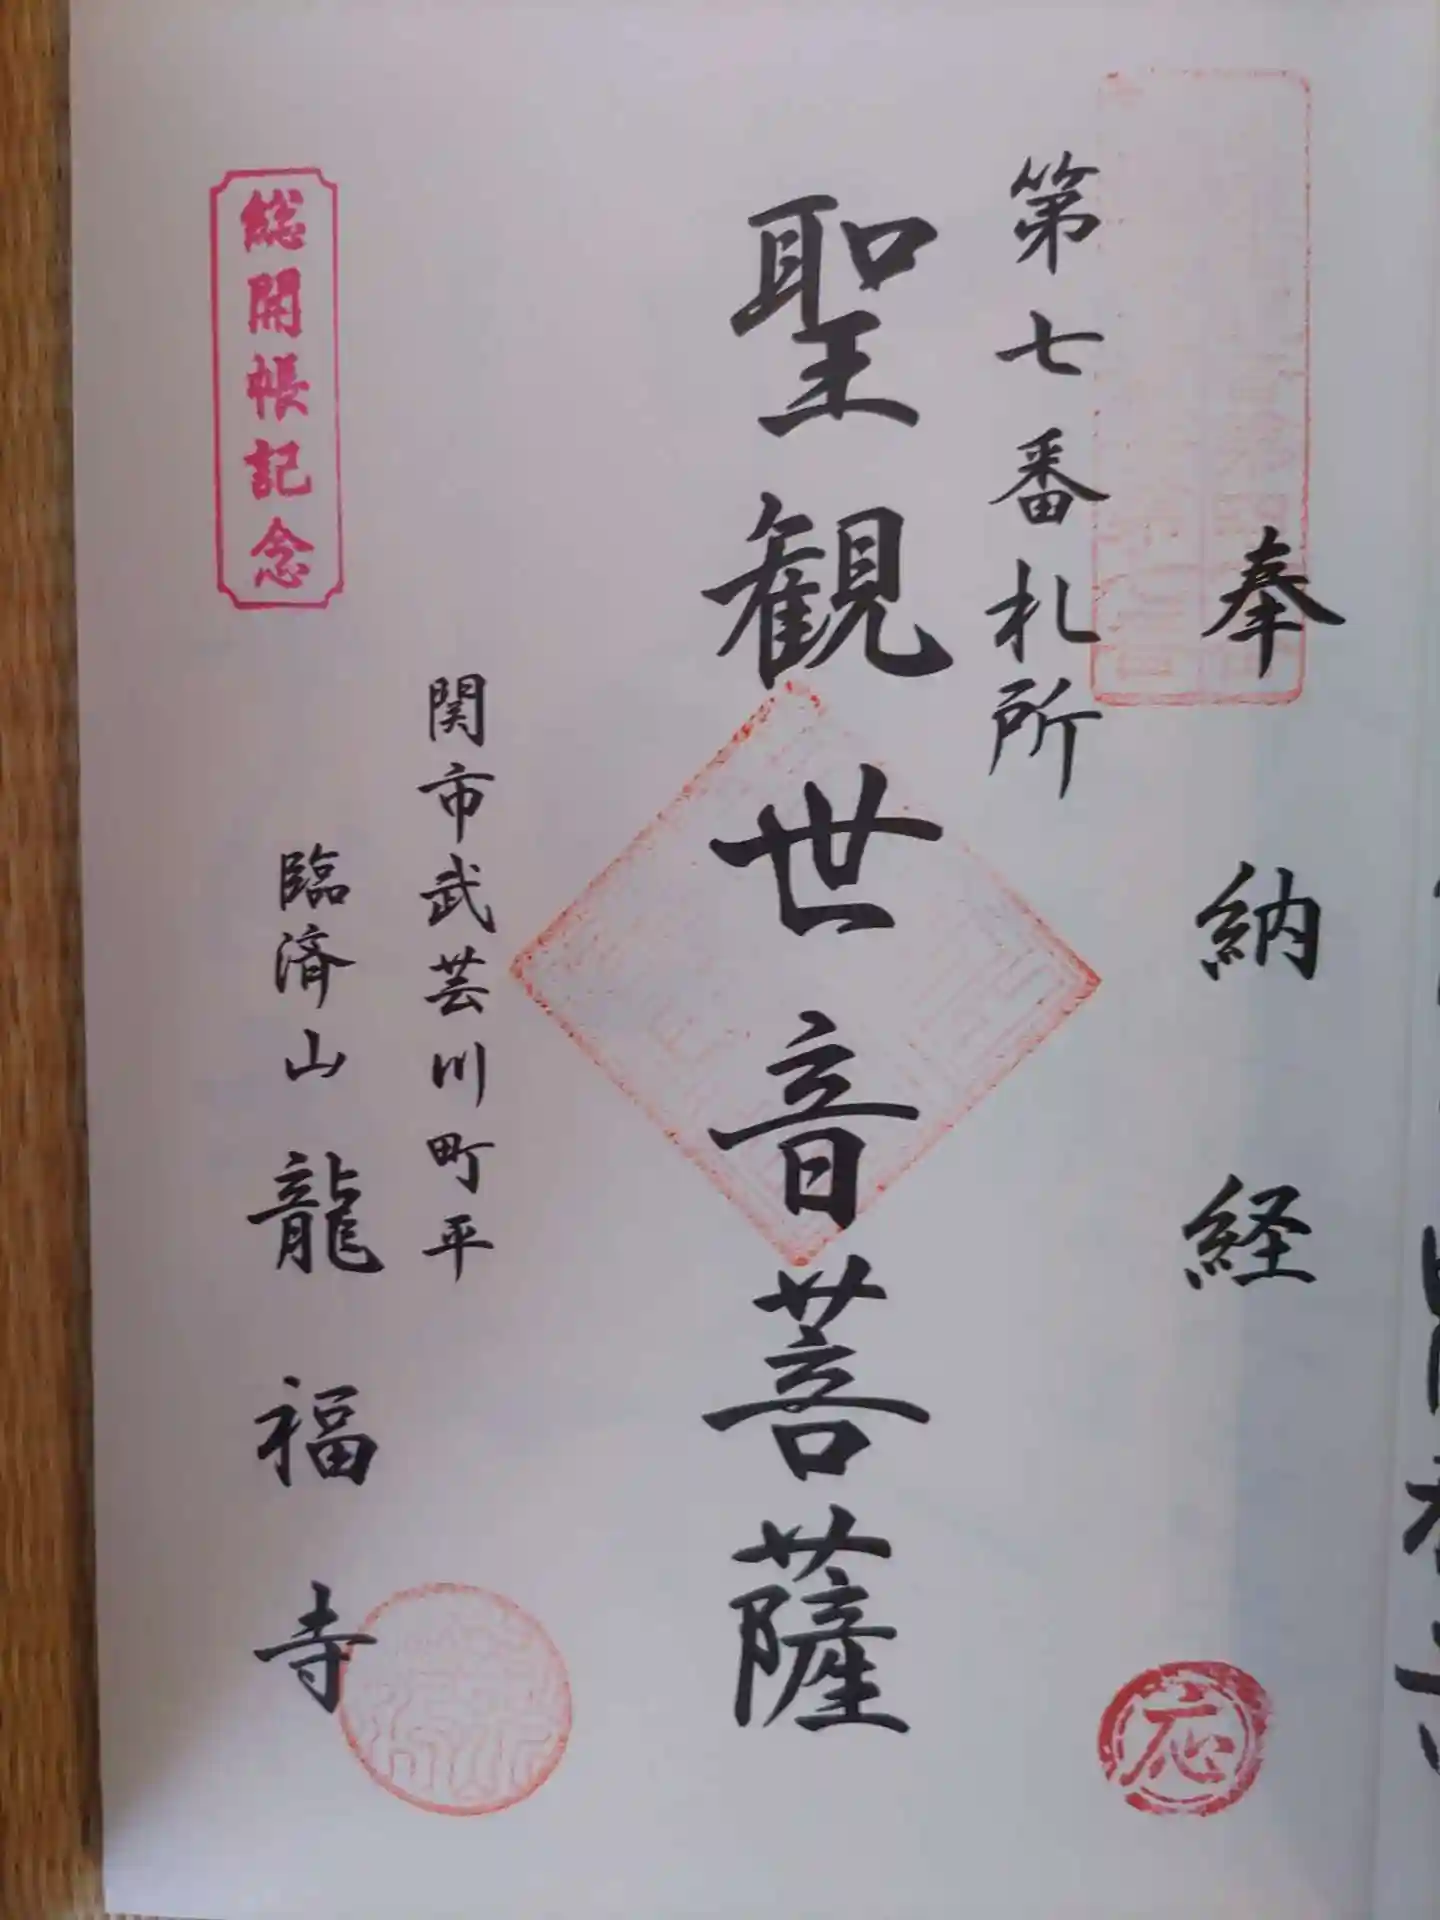 奉納経
第七番札所
聖観世音菩薩
関市武芸川町平
臨済山龍福寺
総開帳記念
応